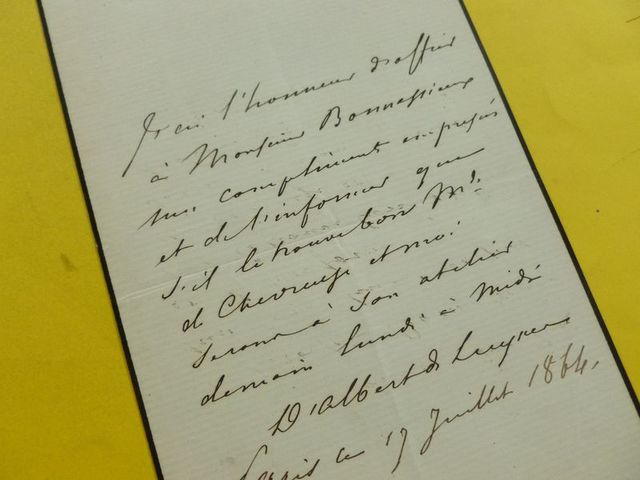 J'ai l'honneur d'offrir
à Monsieur Bonnassieux
mes compliments empressés
et de l'informer que
s'il le trouve bon Md.
de Chevreuse et moi
serons à son atelier
demain lundi à midi
D'Albert de Luynes
Paris le 17 Juillet 1864.